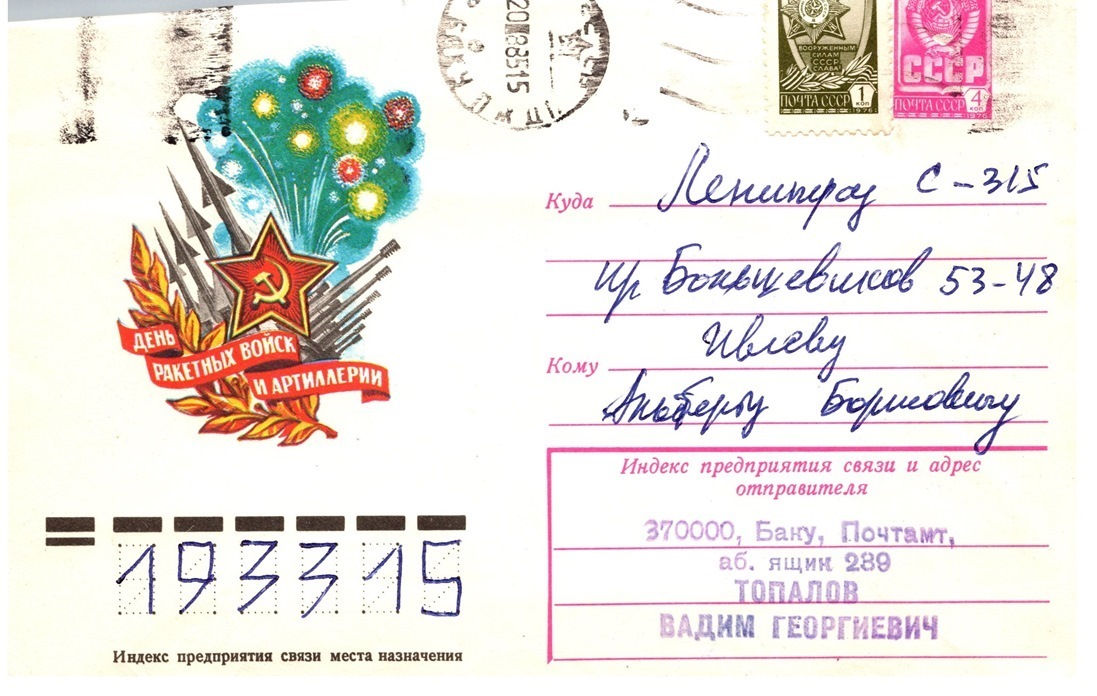 ВООРУЖЕННЫМ
СИЛАМ
СССР
СЛАВА!
ПОЧТА СССР 1 КОП
1976
СССР
ПОЧТА СССР 4 КОП
1976
Куда Ленинград С-315
пр Большевиков 53-48
Ивлеву
Кому
Альберту Борисовичу
ДЕНЬ
РАКЕТНЫХ ВОЙСК
И АРТИЛЛЕРИИ
Индекс предприятия связи и адрес
отправителя
370000, Баку, Почтамт,
аб. ящик 289
ТОПАЛОВ
ВАДИМ ГЕОРГИЕВИЧ
193315
Индекс предприятия связи места назначения